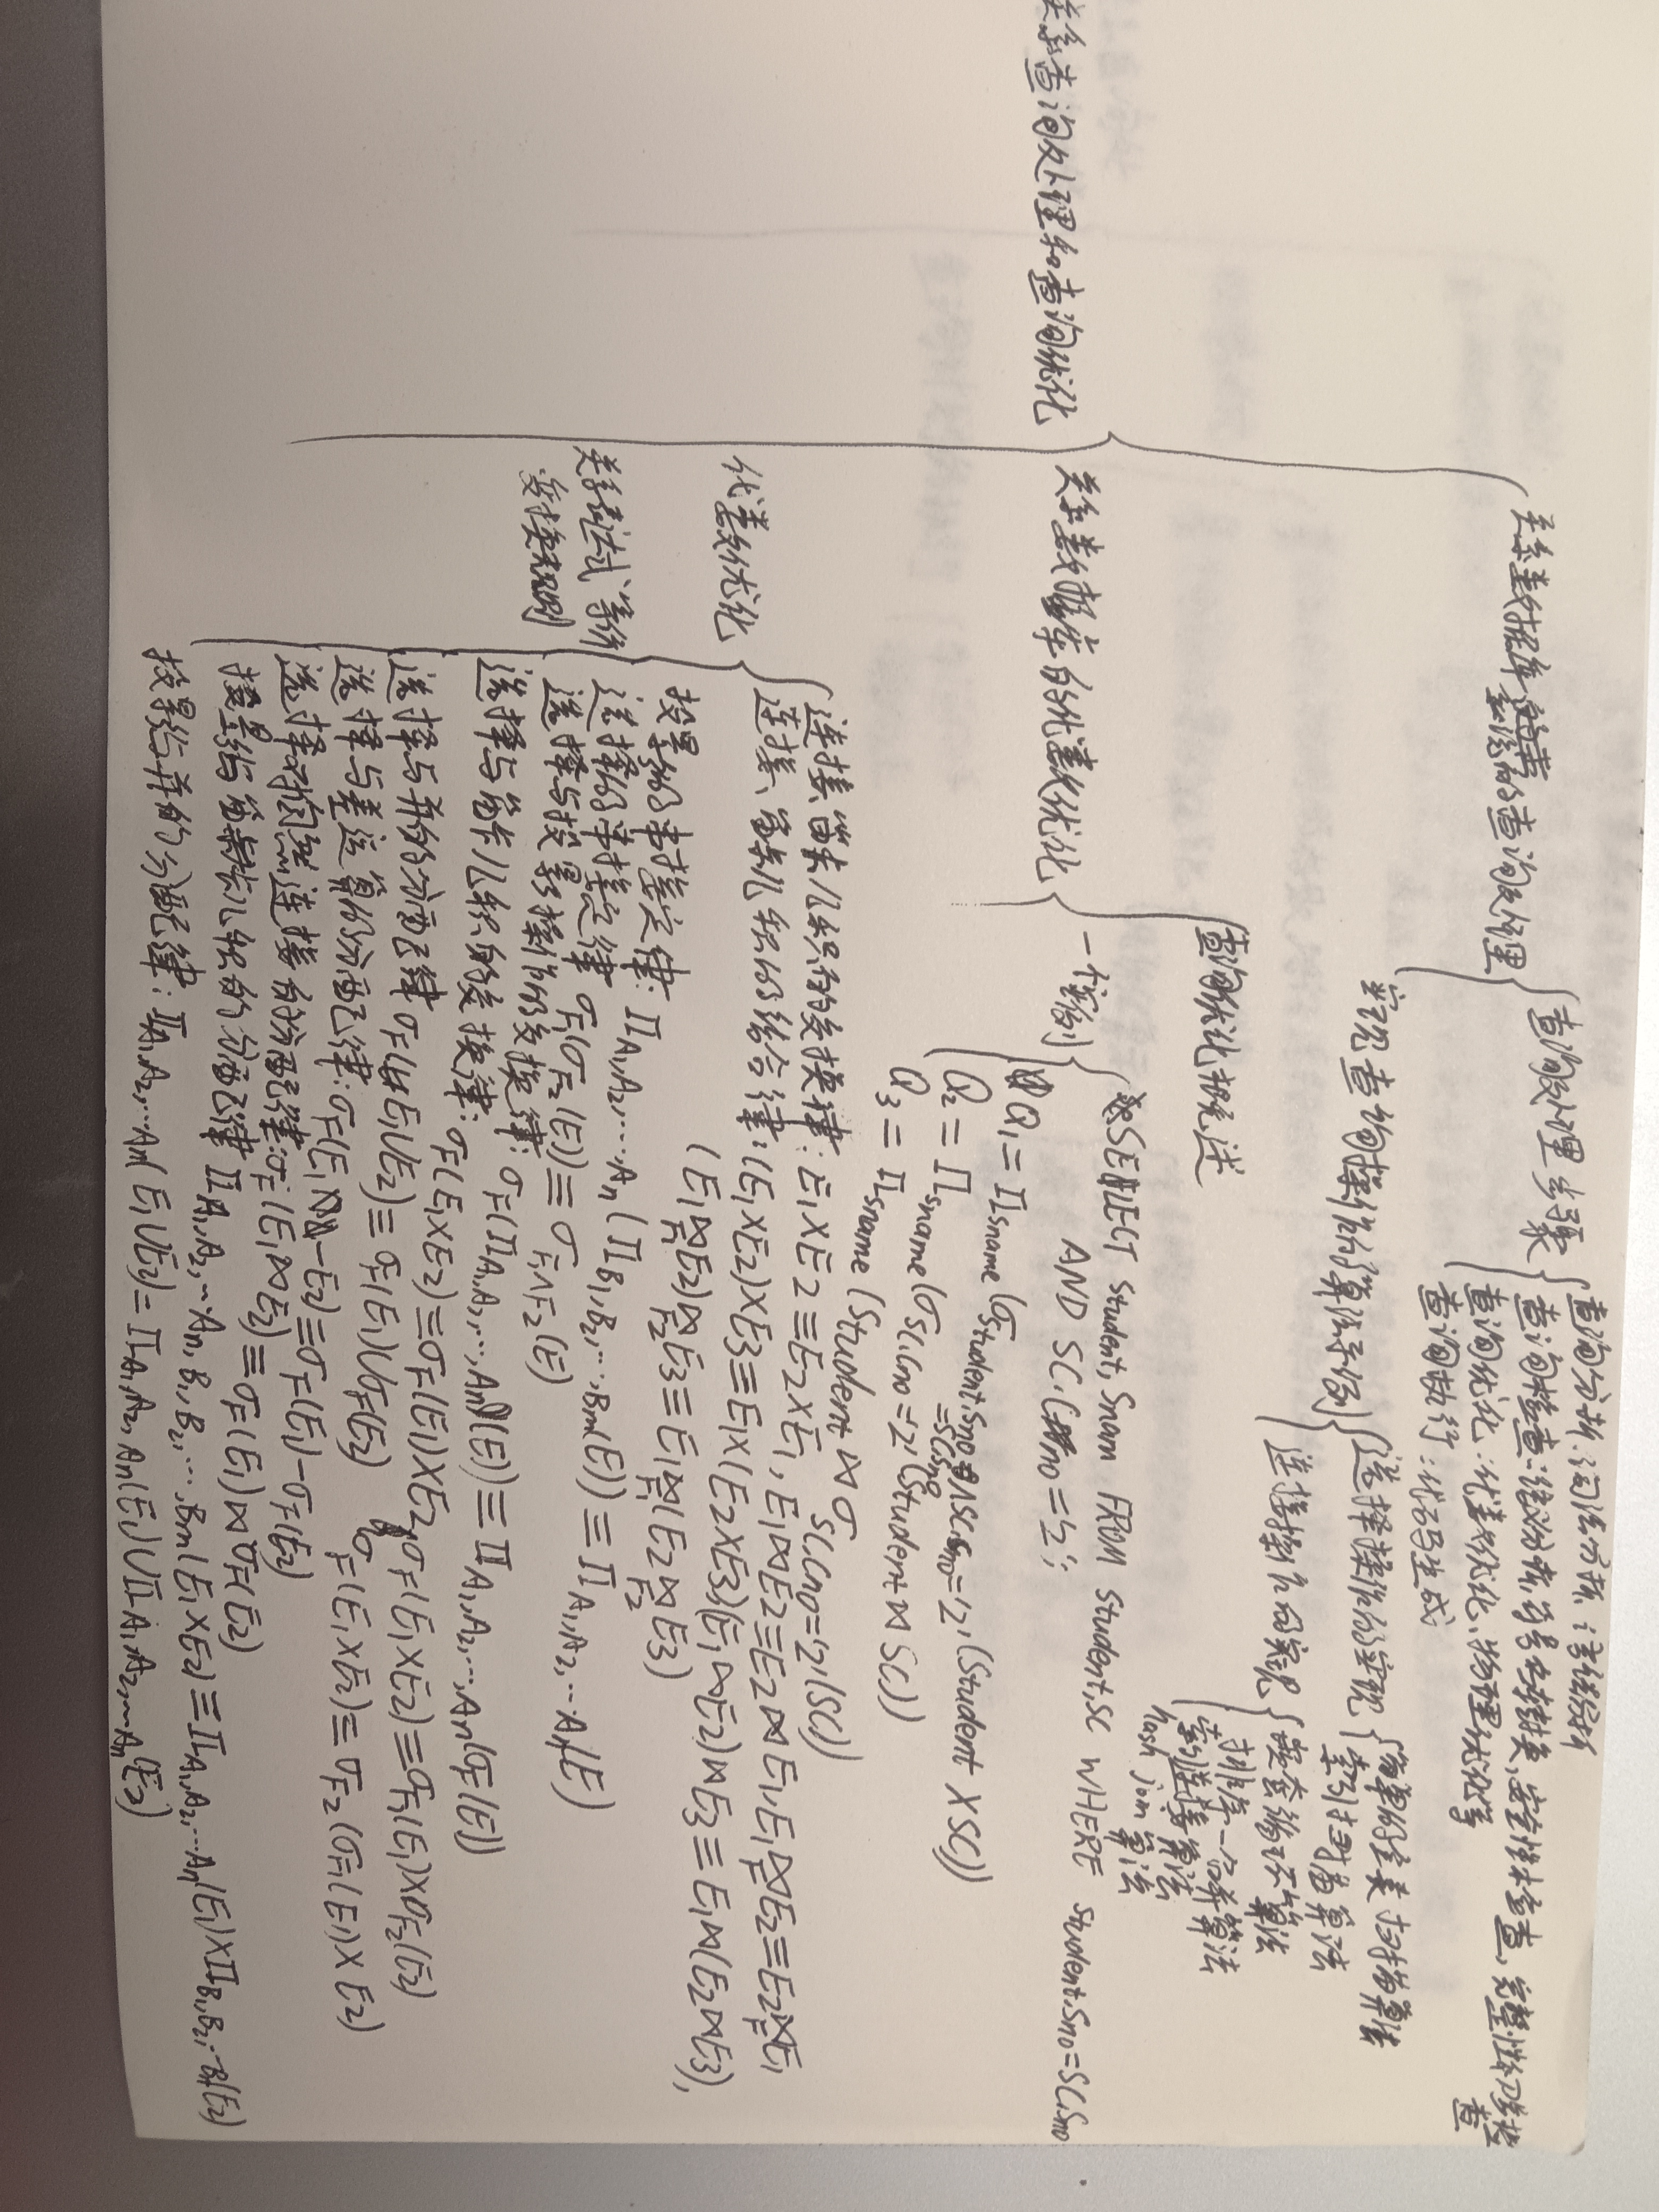 关系查询处理和查询优化
关系数据库系统的查询处理
查询处理步骤
查询分析：词法分析、语法分析
查询检查：语义分析、符号名转换、安全性检查、完整性初步检查
查询优化：代数优化、物理优化等
查询执行：代码生成
实现查询操作的算法示例
选择操作的实现
简单的全表扫描算法
索引扫描算法
连接操作的实现
嵌套循环算法
排序-合并算法
索引连接算法
hash join 算法
关系数据库的代数优化
查询优化概述
一个实例
SELECT Student.Snam FROM Student,SC WHERE Student.Sno=SC.Sno
AND SC.Cno='2';
Q₁=Πsname(σStudent.Sno=SC.Sno∧SC.Sno='2'(Student×SC))
Q₂=Πsname(σSC.Cno='2'(Student⋈SC))
Q₃=Πsname(Student⋈σSC.Cno='2'(SC))
代数优化
关系表达式等价
变换规则
连接、笛卡儿积的交换律：E₁×E₂≡E₂×E₁, E₁⋈E₂≡E₂⋈E₁, E₁⋈FE₂≡E₂⋈FE₁
连接、笛卡儿积的结合律：(E₁×E₂)×E₃≡E₁×(E₂×E₃),(E₁⋈E₂)⋈E₃≡E₁⋈(E₂⋈E₃),
(E₁⋈F₁E₂)⋈F₂E₃≡E₁⋈F₁(E₂⋈F₂E₃)
投影的串接定律：ΠA₁,A₂,…,An(ΠB₁,B₂,…,Bm(E))≡ΠA₁,A₂,…An(E)
选择的串接定律 σF₁(σF₂(E))≡σF₁∧F₂(E)
选择与投影操作的交换律：σF(ΠA₁,A₂,…,An(E))≡ΠA₁,A₂,…,An(σF(E))
选择与笛卡儿积的交换律：σF(E₁×E₂)≡σF(E₁)×E₂, σF(E₁×E₂)≡σF₁(E₁)×σF₂(E₂)
σF(E₁×E₂)≡σF₂(σF₁(E₁)×E₂)
选择与并的分配律 σF(E₁∪E₂)≡σF(E₁)∪σF(E₂)
选择与差运算的分配律：σF(E₁-E₂)≡σF(E₁)-σF(E₂)
选择对自然连接的分配律：σF(E₁⋈E₂)≡σF(E₁)⋈σF(E₂)
投影与笛卡儿积的分配律 ΠA₁,A₂,…An,B₁,B₂,…,Bm(E₁×E₂)≡ΠA₁,A₂,…An(E₁)×ΠB₁,B₂,…Bm(E₂)
投影与并的分配律：ΠA₁,A₂,…An(E₁∪E₂)=ΠA₁,A₂,An(E₁)∪ΠA₁,A₂,…An(E₂)